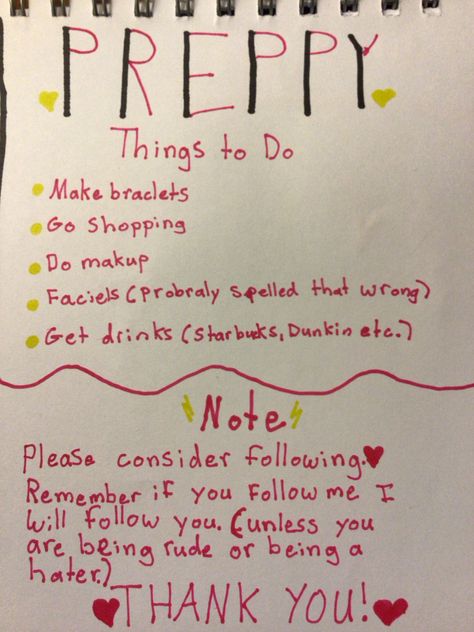 PREPPY
Things to Do
Make braclets
Go Shopping
Do makup
Faciels (Probraly spelled that wrong)
Get drinks (Starbucks, Dunkin etc.)
Note
Please consider following.
Remember if you follow me I
will follow you. (unless you
are being rude or being a
hater.)
THANK YOU!